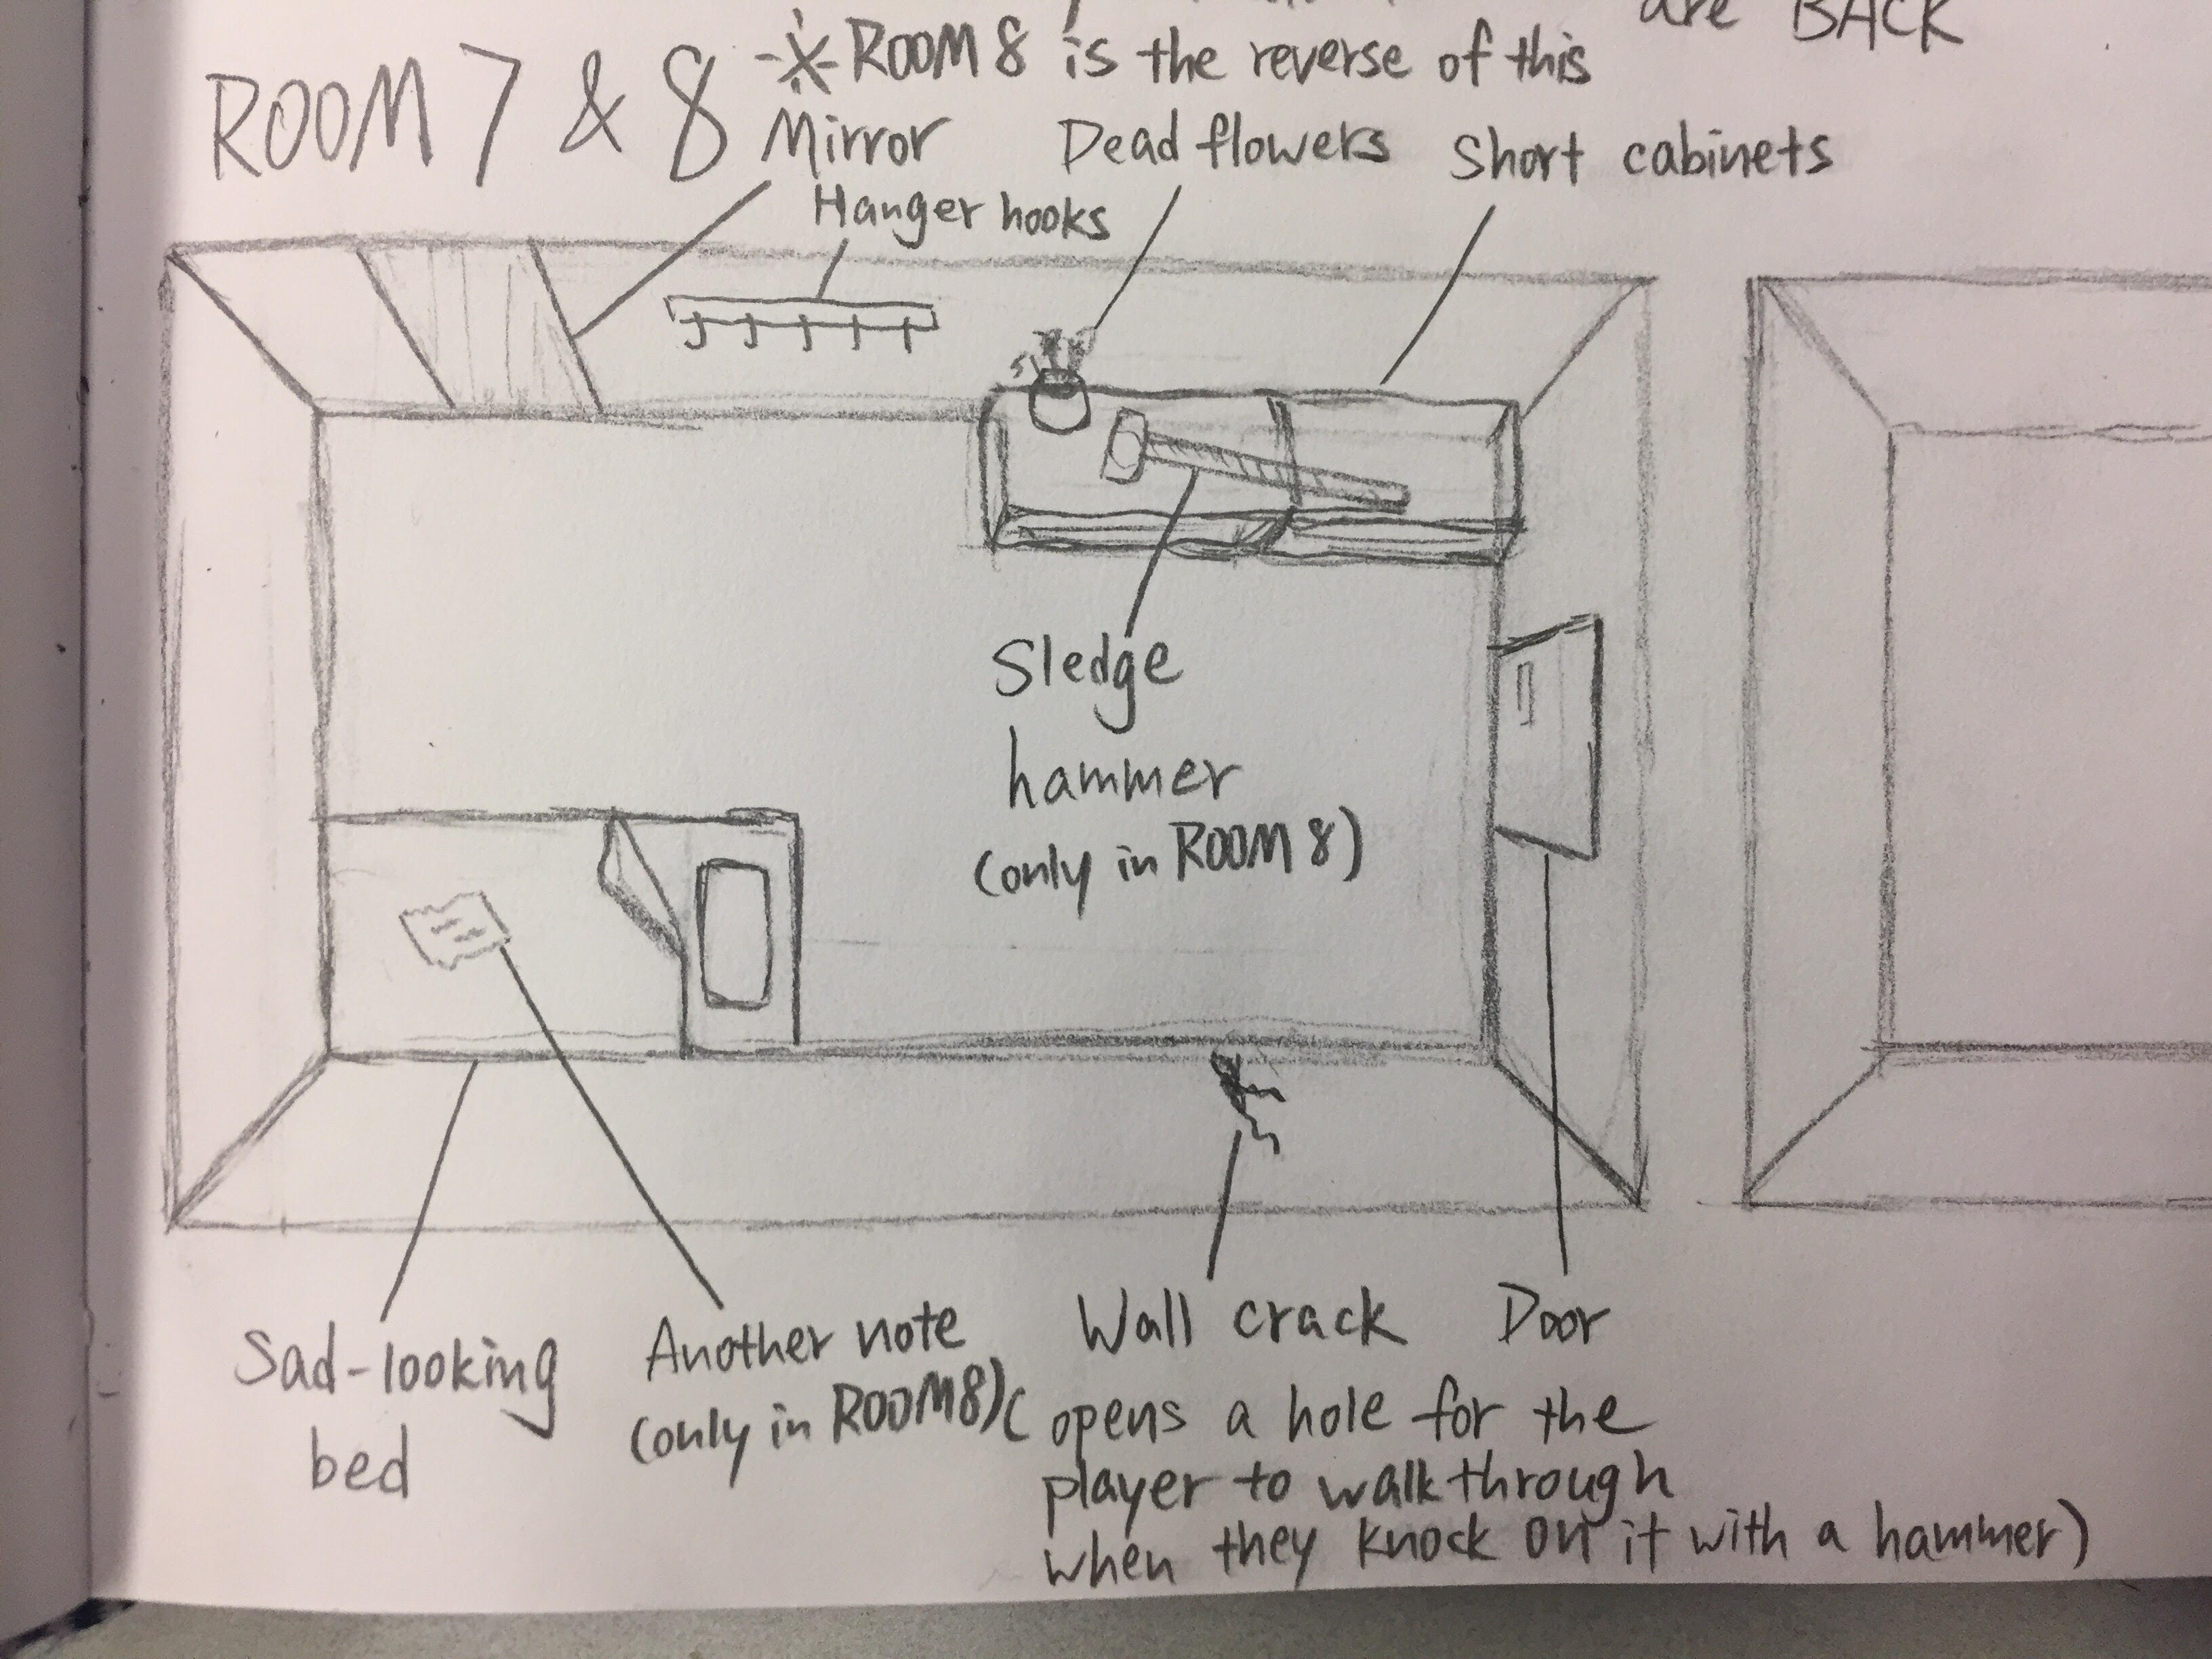 are BACK
ROOM 7 & 8
※ROOM 8 is the reverse of this
Mirror
Dead flowers
Short cabinets
Hanger hooks
Sledge
hammer
(only in ROOM 8)
Sad-looking
bed
Another note
(only in ROOM8)
Wall crack
(opens a hole for the
player to walk through
when they knock on it with a hammer)
Door